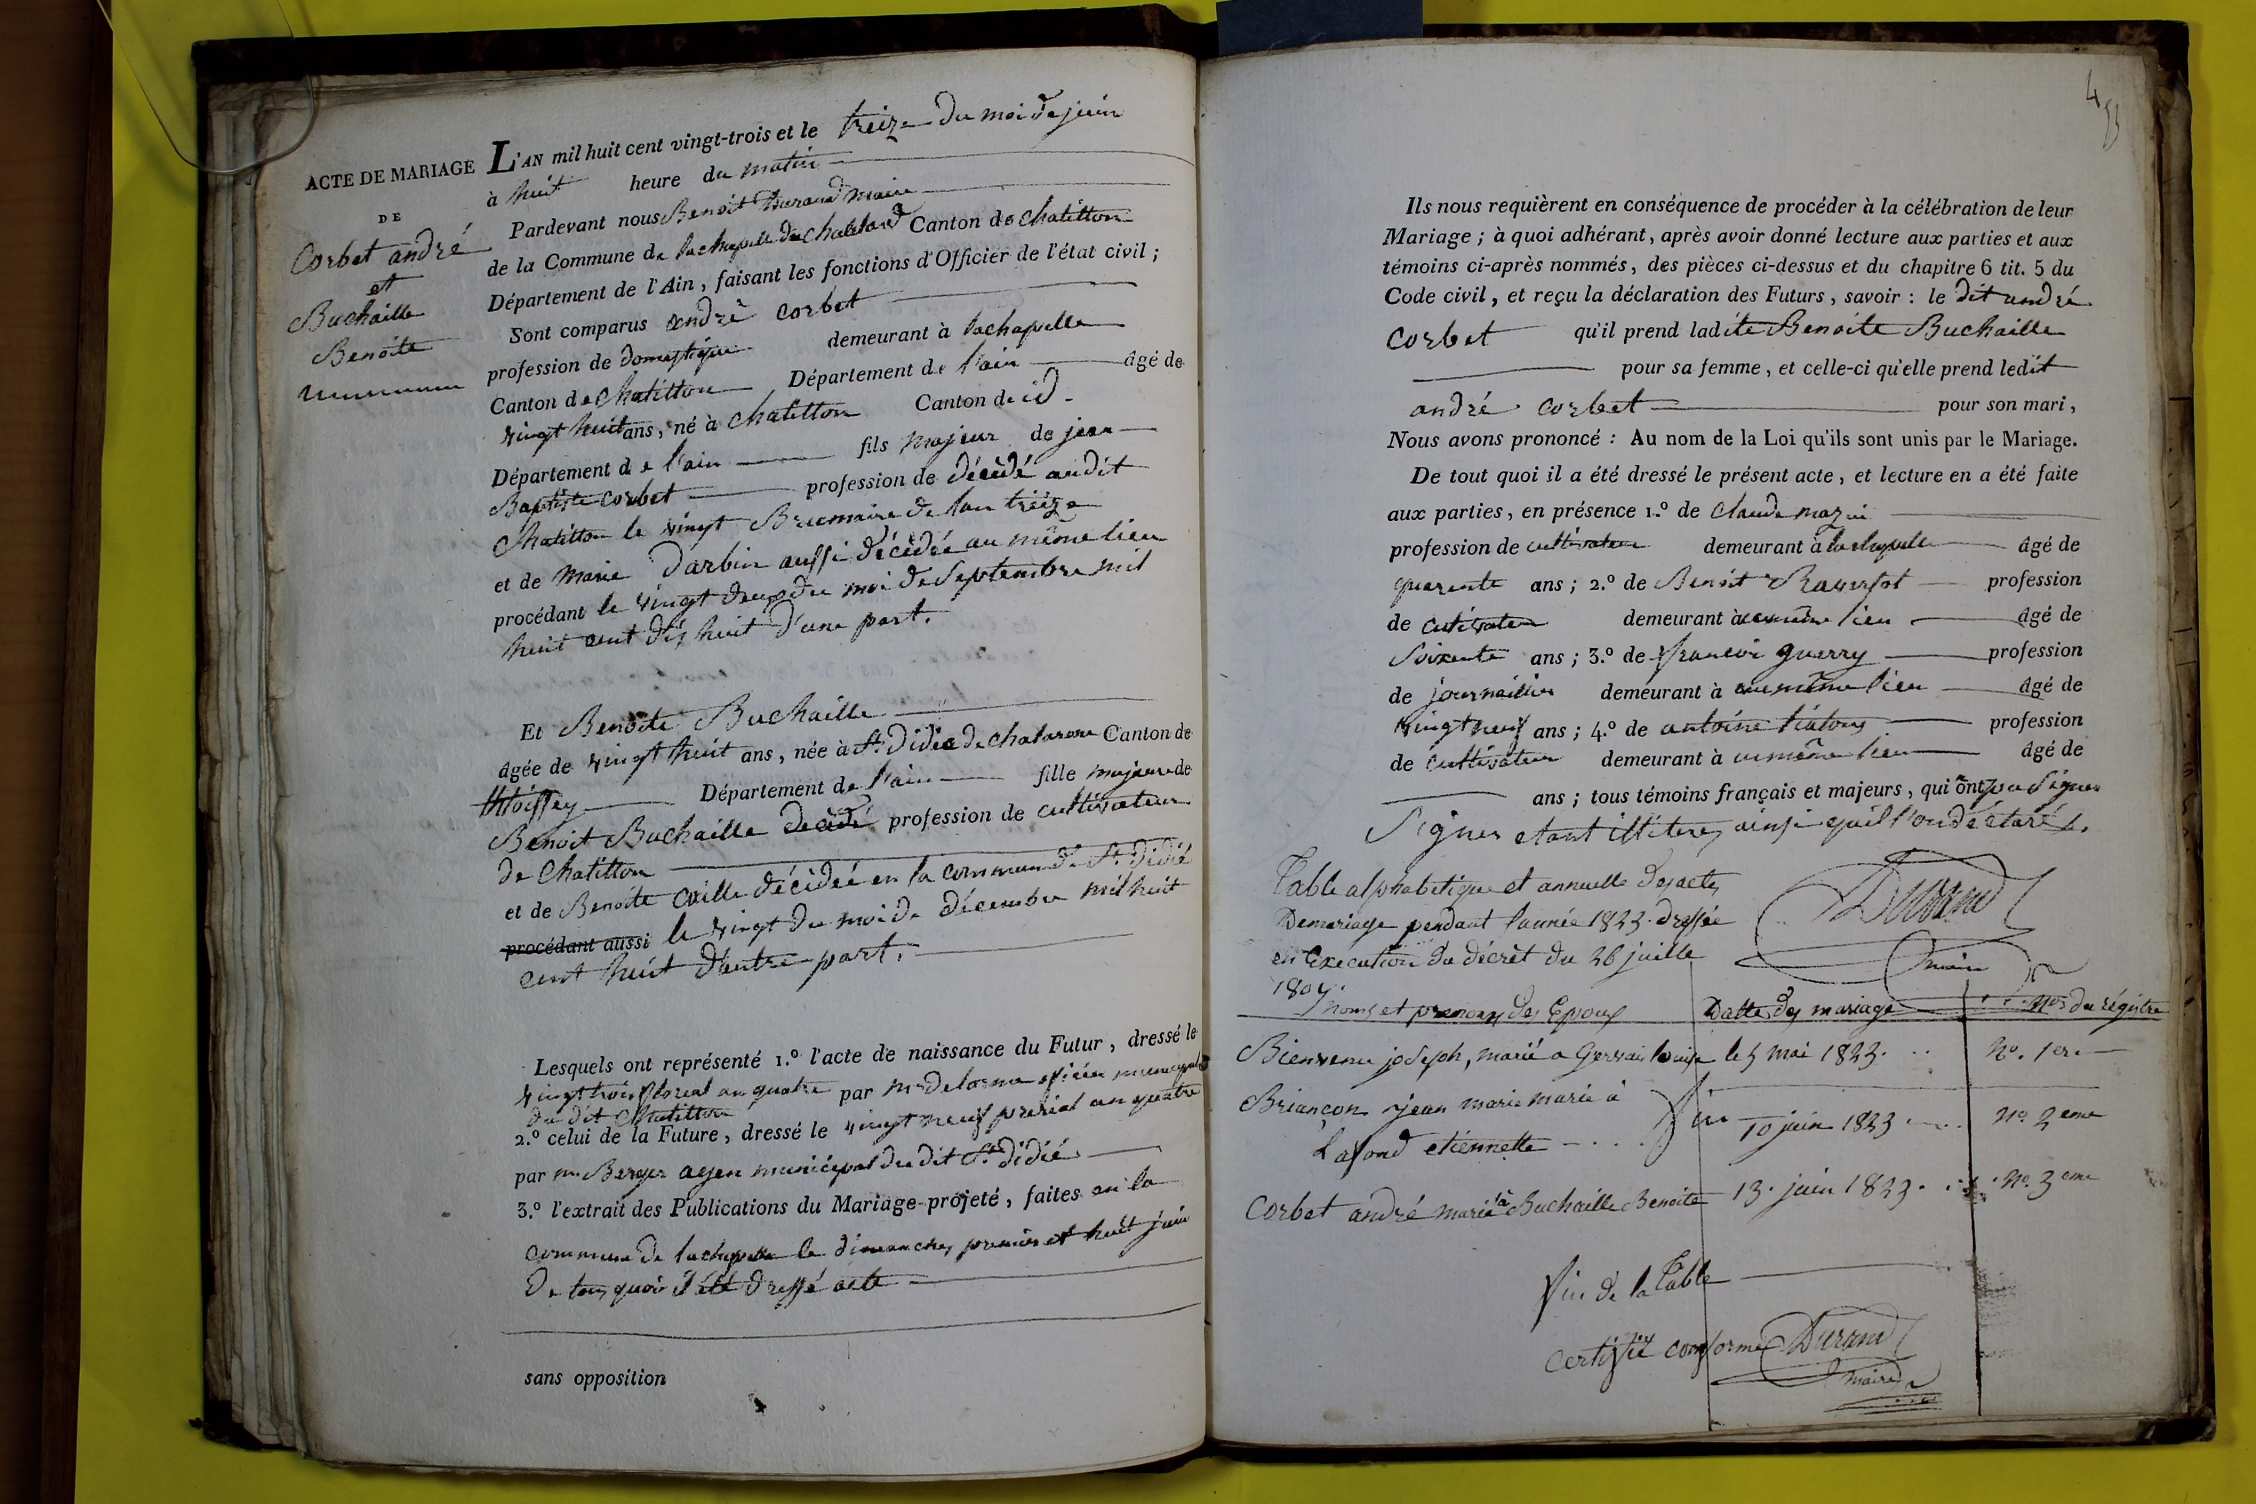 ACTE DE MARIAGE
DE
Corbet andré
et
Buchaille
Benoite
L'AN mil huit cent vingt-trois et le treize du moi de juin
à huit heure du matin
Pardevant nous Benoit Durand maire
de la Commune de lachapelle du chatelard Canton de chatillon
Département de l'Ain, faisant les fonctions d'Officier de l'état civil ;
Sont comparus andré corbet
profession de domestique demeurant à lachapelle
Canton de chatillon Département de l'ain âgé de
vingt huit ans, né à chatillon Canton de id.
Département de l'ain fils majeur de jean
Baptiste corbet profession de décédé audit
Chatillon le vingt Brumaire de lan treize
et de marie Darbin aussi décédée au même lieu
procédant le vingt deux du moi de Septembre mil
huit cent dix huit d'une part.
Et Benoite Buchaille
âgée de vingt huit ans, née à St. Didier de chalarone Canton de
thoissey Département de l'ain fille majeure de
Benoit Buchaille décédé profession de cultivateur
de Chatillon
et de Benoite décédée en la commune de St. Didié
procédant aussi le vingt du moi de décembre mil huit
cent huit d'autre part.
Lesquels ont représenté 1.º l'acte de naissance du Futur, dressé le
vingt trois floreal an quatre par mr. delorme officier municipal
du dit Chatillon
2.º celui de la Future, dressé le vingt neuf prerial an quatre
par mr Berger agen municipal du dit St. didié
3.º l'extrait des Publications du Mariage projeté, faites en la
commune de lachapelle le dimanches premier et huit juin
De tous quoi il été dressé acte
sans opposition
4
Ils nous requièrent en conséquence de procéder à la célébration de leur
Mariage ; à quoi adhérant, après avoir donné lecture aux parties et aux
témoins ci-après nommés, des pièces ci-dessus et du chapitre 6 tit. 5 du
Code civil, et reçu la déclaration des Futurs, savoir : le dit andré
corbet qu'il prend ladite Benoite Buchaille
pour sa femme, et celle-ci qu'elle prend ledit
andré corbet pour son mari,
Nous avons prononcé : Au nom de la Loi qu'ils sont unis par le Mariage.
De tout quoi il a été dressé le présent acte, et lecture en a été faite
aux parties, en présence 1.º de claude mazui
profession de cultivateur demeurant à lachapelle âgé de
quarente ans ; 2.º de Benoit profession
de cutivateur demeurant à au même lieu âgé de
Soixente ans ; 3.º de francoi guerry profession
de journallier demeurant à au même lieu âgé de
vingt neuf ans ; 4.º de antoine profession
de cultivateur demeurant à au même lieu âgé de
ans ; tous témoins français et majeurs, qui ont pu Signer
Signer etant illiteres ainsi quil l'on déclaré.
Durand
maire
Table alphabetique et annuelle des actes
De mariage pendant l'année 1823 dressée
en Execution du décret du 26 juille
1807
Noms et prenoms des Epoux Datte des mariage nos du régistre
Bienvenu joseph, marié a Gervais louise le 5 mai 1823. No. 1er.
Briançon jean marie marié à
Lafond etiennette 10 juin 1823 No. 2eme
Corbet andré marié à Buchaille Benoite 13. juin 1823. No. 3eme
fin de la Table
Certifié conforme Durand
maire